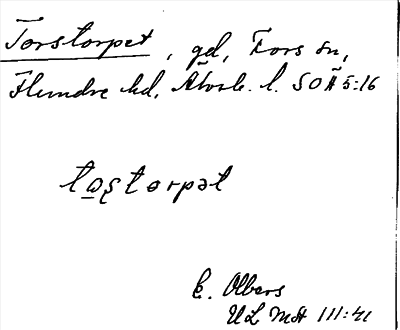 Torstorpet, gd, Fors sn,
Flundre hd, Älvsb. l. SOÄ 5:16
tɷʂtorpət
E. Olbers
ULMA 111:41